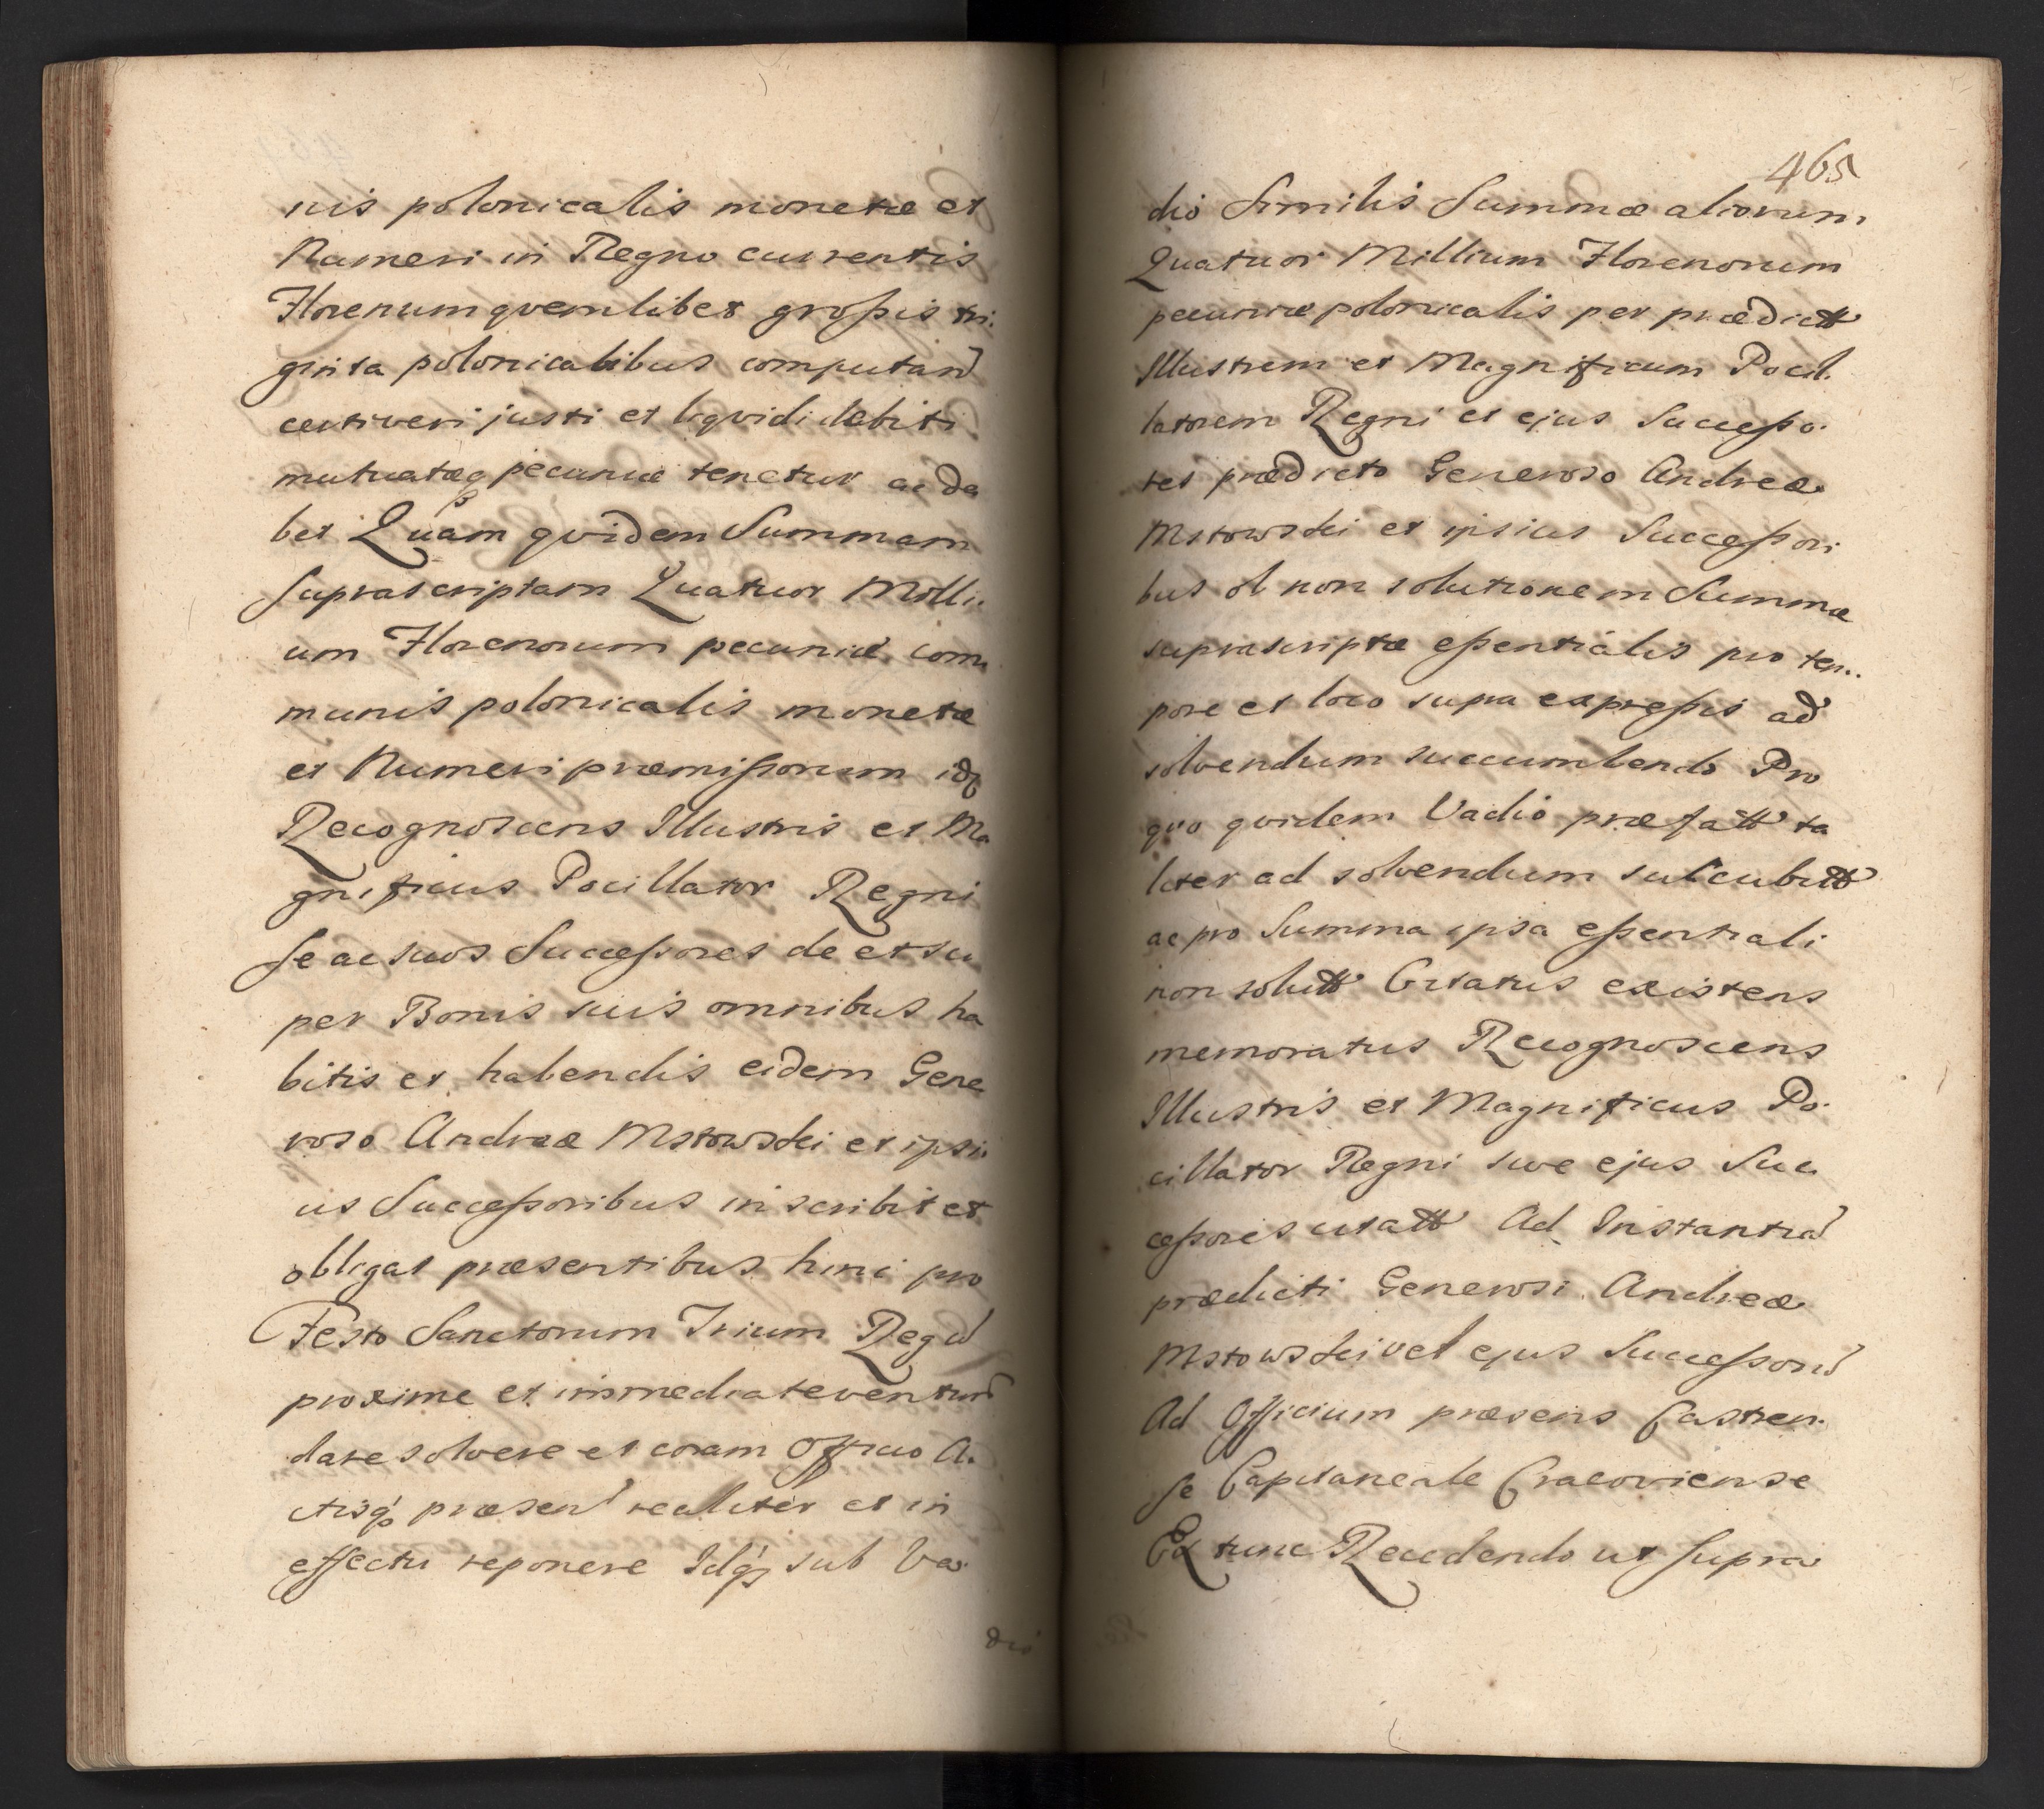 nis polonicalis monetæ et
Numeri in Regno currentis
Florenum qvemlibet grossis tri.
ginta polonicalibus computand
certi veri justi et liqvidi debiti
mutuatæq pecuniæ tenetur ac de
bet Quam qvidem Summam
suprascriptam Quatuor Milli.
um Florenorum pecuniæ com
munis polonicalis monetæ
et Numeri præmissorum idq
Recognoscens Illustris et Ma
gnificus Pocillator Regni
se ac suos Successores de et su
per Bonis suis omnibus ha
bitis et habendis eidem Gene
roso Andreæ Mstowski et ipsi.
us Successoribus inscribit et
obligat præsentibus hinc pro
Festo Sanctorum Trium Regu
proxime et immediate ventur
dare solvere et coram Officio A.
ctisq præsen realiter et in
effectu reponere Idq sub Va.
dio
465
dio Similis Summæ aliorum
Quatuor Millium Florenorum
pecuniæ polonicalis per prædictt
Illustrem et Magnificum Pocil.
latorem Regni et ejus Successo.
res prædicto Generoso Andreæ
Mstowski et ipsius Successori
bus ob non solutionem Summæ
suprascriptæ essentialis pro tem.
pore et loco supra expressis ad
solvendum succumbendo Pro
quo qvidem Vadio præfatt ta
liter ad solvendum succubitt
ac pro Summa ipsa essentiali
non solutt Citatus existens
memoratus Recognoscens
Illustris et Magnificus Po.
cillator Regni sive ejus Suc
cessores citatt Ad Instantia
prædicti Generosi Andreæ
Mstowski vel ejus Successoru
Ad Officium præsens Castren.
se Capitaneale Cracoviense
Ex tunc Recedendo ut supra